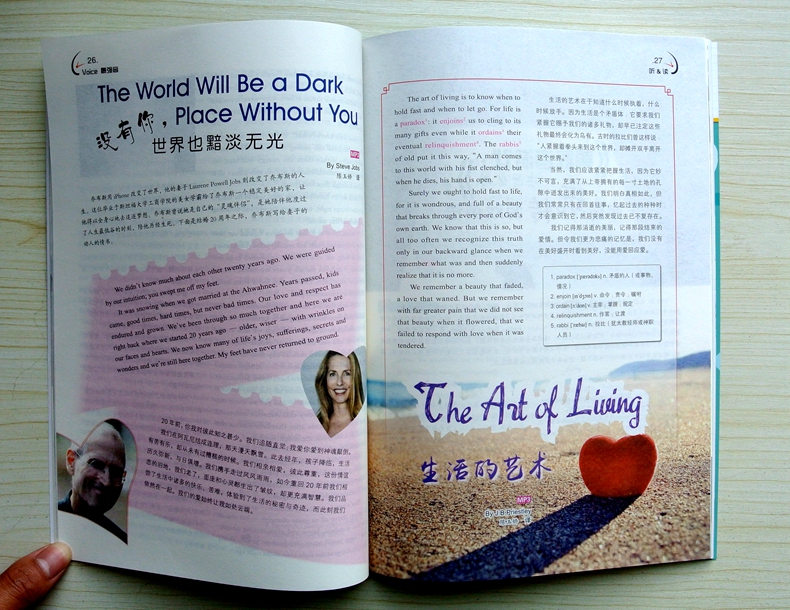 26.
Voice 最强音
The World Will Be a Dark
没有你，Place Without You
世界也黯淡无光
MP3
By Steve Jobs
乔布斯用 iPhone 改变了世界，他的妻子 Laurene Powell Jobs 则改变了乔布斯的人
动人的情书。
We didn't know much about each other twenty years ago. We were guided
by our intuition; you swept me off my feet.
It was snowing when we got married at the Ahwahnee. Years passed, kids
came, good times, hard times, but never bad times. Our love and respect has
endured and grown. We've been through so much together and here we are
right back where we started 20 years ago — older, wiser — with wrinkles on
our faces and hearts. We now know many of life's joys, sufferings, secrets and
wonders and we're still here together. My feet have never returned to ground.
20 年前，你我对彼此知之甚少。我们追随直觉；我爱你爱到神魂颠倒。
我们在阿瓦尼结成连理，那天漫天飘雪。此去经年，孩子降临，生活
有苦有乐，却从未有过糟糕的时候。我们相亲相爱，彼此尊重，这份情谊
历久弥新，与日俱增。我们携手走过风风雨雨，如今重回 20 年前我们相
恋的旧地，我们老了，面庞和心灵都生出了皱纹，却更充满智慧。我们品
尝了生活中诸多的快乐、苦难，体验到了生活的秘密与奇迹，而此刻我们
依然在一起。我们的爱始终让我如处云端。
.27
听 & 读
The art of living is to know when to
hold fast and when to let go. For life is
a paradox¹: it enjoins² us to cling to its
many gifts even while it ordains³ their
eventual relinquishment⁴. The rabbis⁵
of old put it this way, "A man comes
to this world with his fist clenched, but
when he dies, his hand is open."
Surely we ought to hold fast to life,
for it is wondrous, and full of a beauty
that breaks through every pore of God's
own earth. We know that this is so, but
all too often we recognize this truth
only in our backward glance when we
remember what was and then suddenly
realize that it is no more.
We remember a beauty that faded,
a love that waned. But we remember
with far greater pain that we did not see
that beauty when it flowered, that we
failed to respond with love when it was
tendered.
生活的艺术在于知道什么时候执着，什么
时候放手。因为生活是个矛盾体：它要求我们
紧握它赐予我们的诸多礼物，却早已注定这些
礼物最终会化为乌有。古时的拉比们曾这样说：
“人紧握着拳头来到这个世界，却摊开双手离开
这个世界。”
当然，我们应该紧紧把握生活，因为它妙
不可言，充满了从上帝拥有的每一寸土地的孔
隙中迸发出来的美好。我们明白真相如此，但
我们常常只有在回首往事，忆起过去的种种时
才会意识到它，然后突然发现过去已不复存在。
我们记得那消逝的美丽，记得那段结束的
爱情。但令我们更为悲痛的记忆是，我们没有
在美好盛开时看到美好，没能用爱回应爱。
1. paradox n. 矛盾的人（或事物、
情况）
2. enjoin v. 命令；责令；嘱咐
3. ordain v. 主宰；掌握；规定
4. relinquishment n. 作罢；让渡
5. rabbi n. 拉比（犹太教经师或神职
人员）
The Art of Living
生活的艺术
MP3
By J.B.Priestley